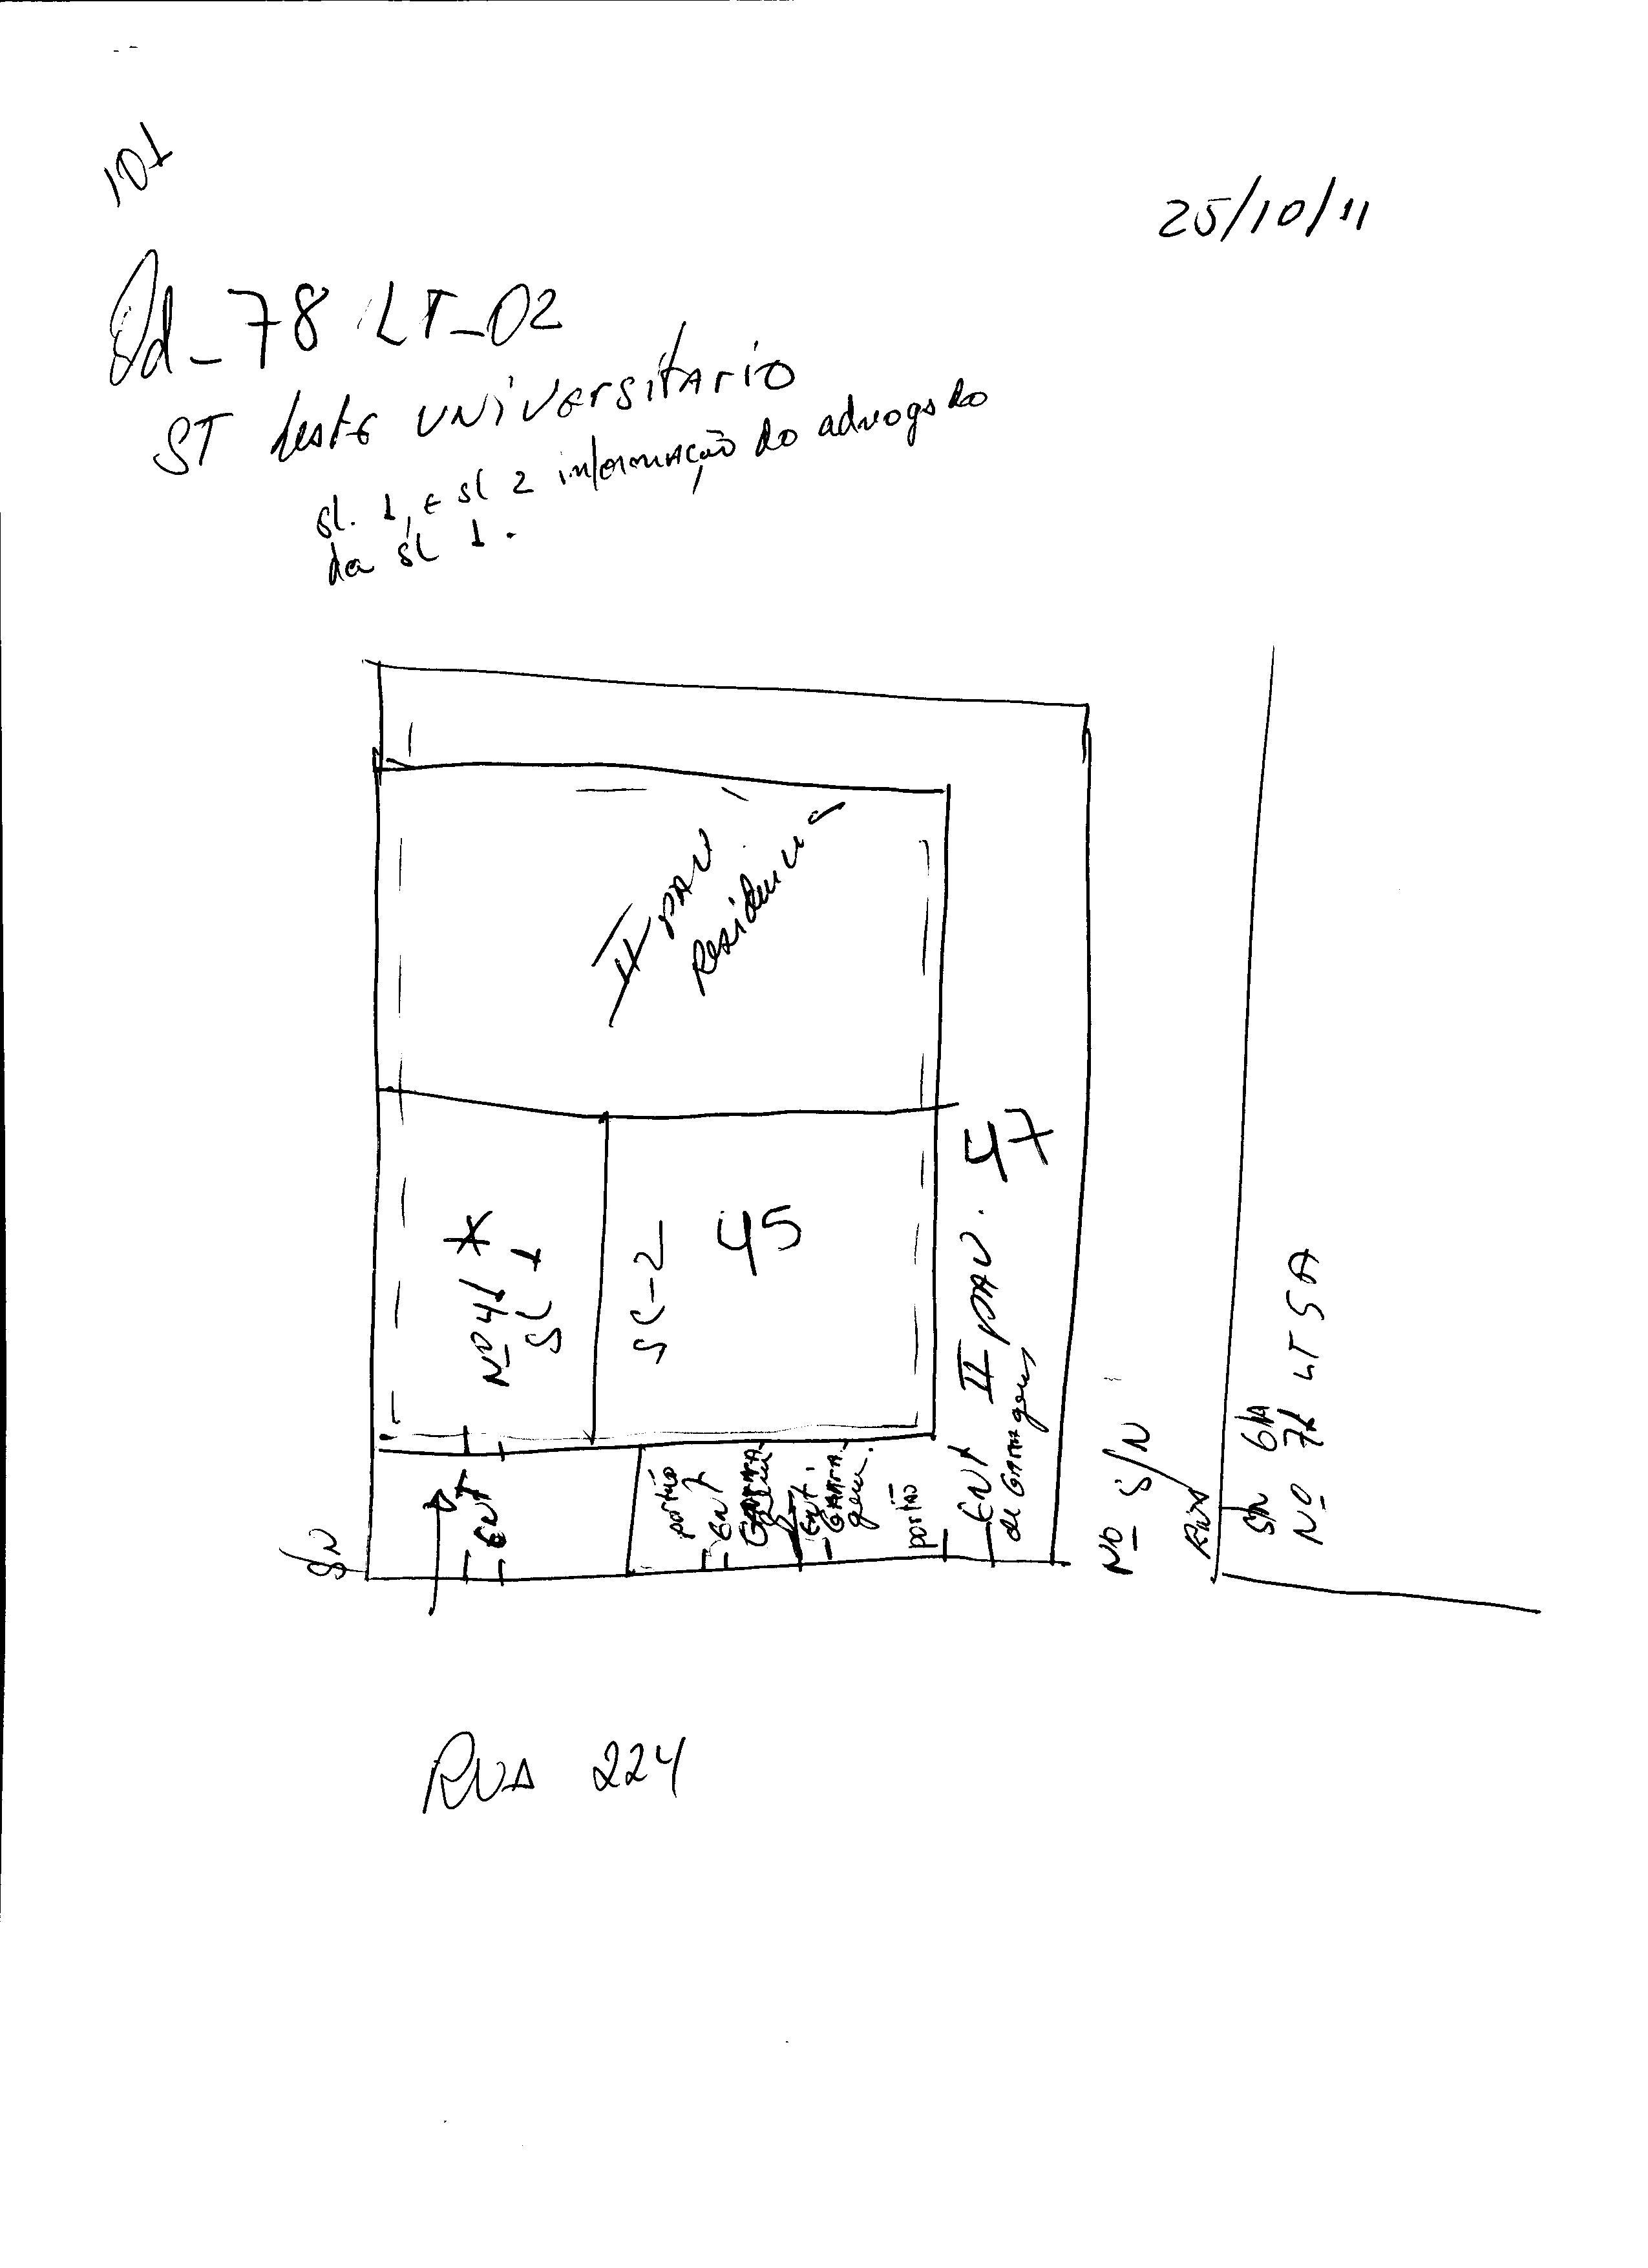 101
25/10/11
Qd_78 LT_02
ST Leste UNiVersitArio
sl. 1, e sl 2 informação do advogado
da sl 1.
II PAV
Residencia
47
45
Nº 41 *
SL 1
SL-2
II PAV.
ENT
de GARA gem
portão
ENT
ENT.
GARA
gem.
portão
ENT
S/N
Nº S/N
RUA
S/N
Nº 71 LT 5A
RUA 224